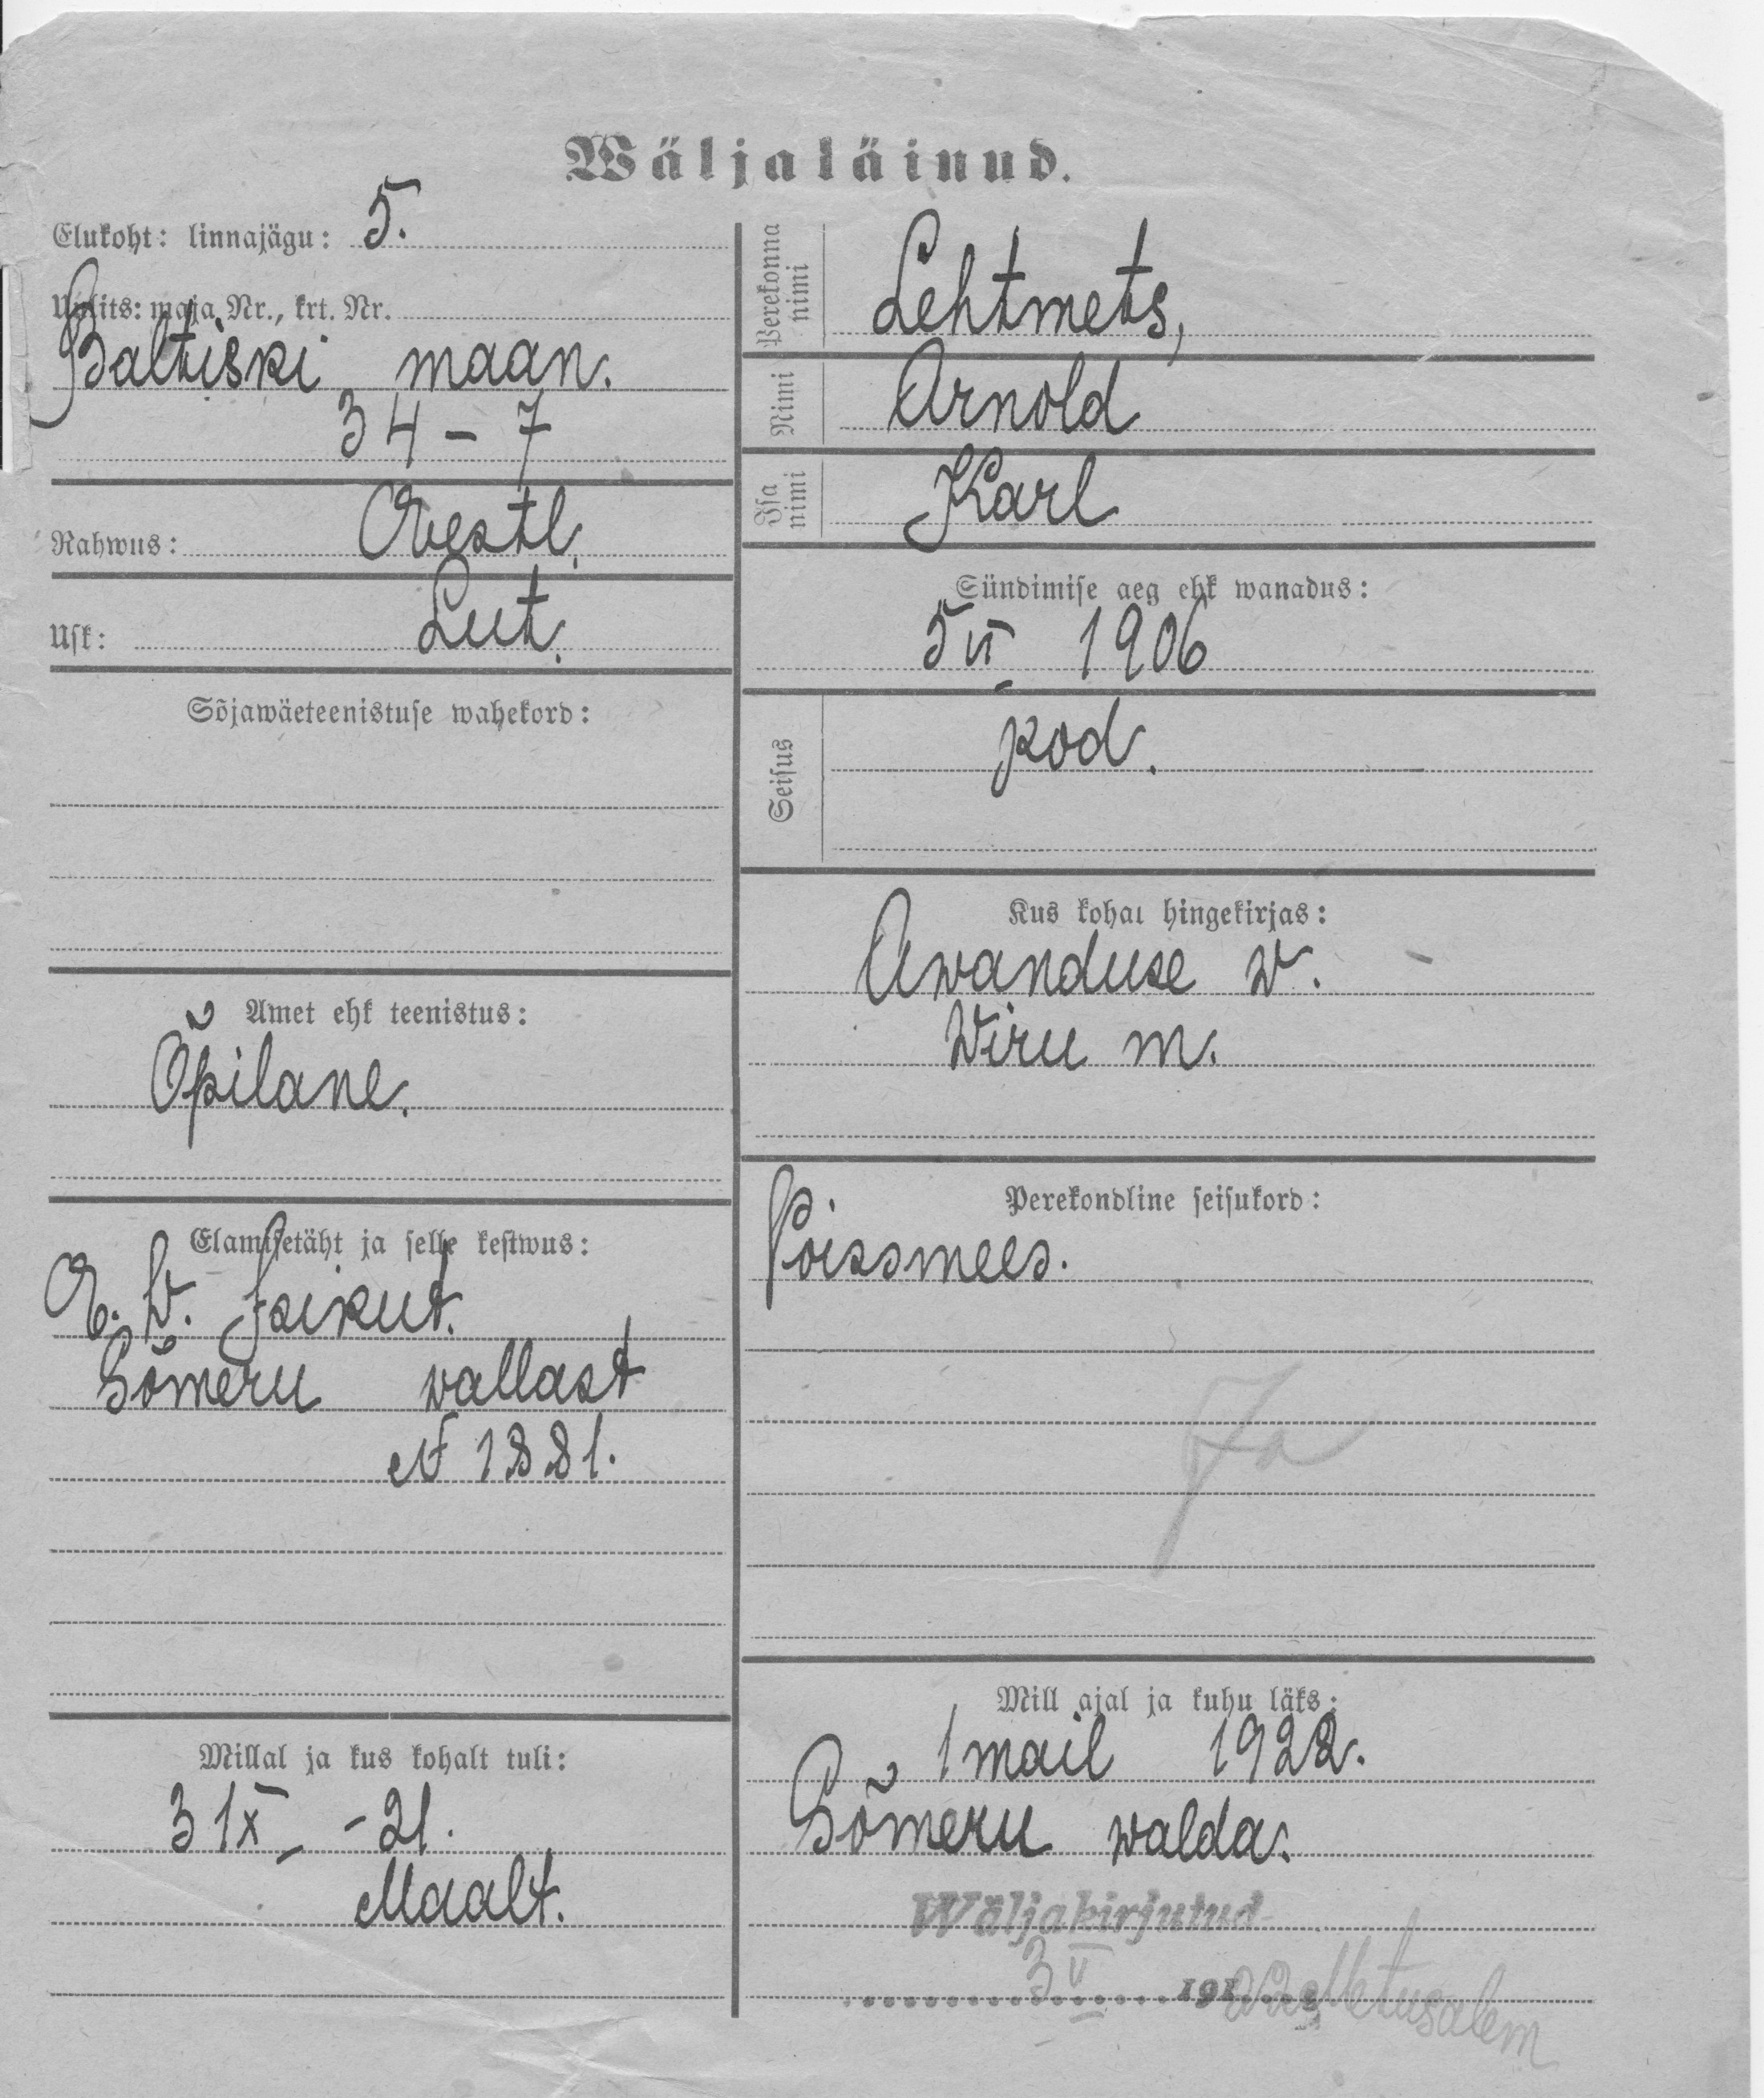 Wäljaläinud.
Elukoht: linnajägu: 5.
Uulits: maja Nr., krt. Nr.
Baltiski maan.
34 - 7
Rahwus: Eestl.
Usk: Lut.
Sõjawäeteenistuse wahekord:
Amet ehk teenistus:
Õpilane.
Elamisetäht ja selle kestwus:
E. W. isikut.
Sõmeru wallast
N 1881.
Millal ja kus kohalt tuli:
3 IX -21.
Maalt.
Perekonna nimi
Lehtmets,
Nimi
Arnold
Isa nimi
Karl
Sündimise aeg ehk wanadus:
5 VI 1906
Seisus
kod.
Kus kohal hingekirjas:
Awanduse w.
Wiru m.
Perekondline seisukord:
Poissmees.
Ja
Mill ajal ja kuhu läks:
1 mail 1922.
Sõmeru walda.
Wäljakirjutud
3 V 191 22 Metusalem